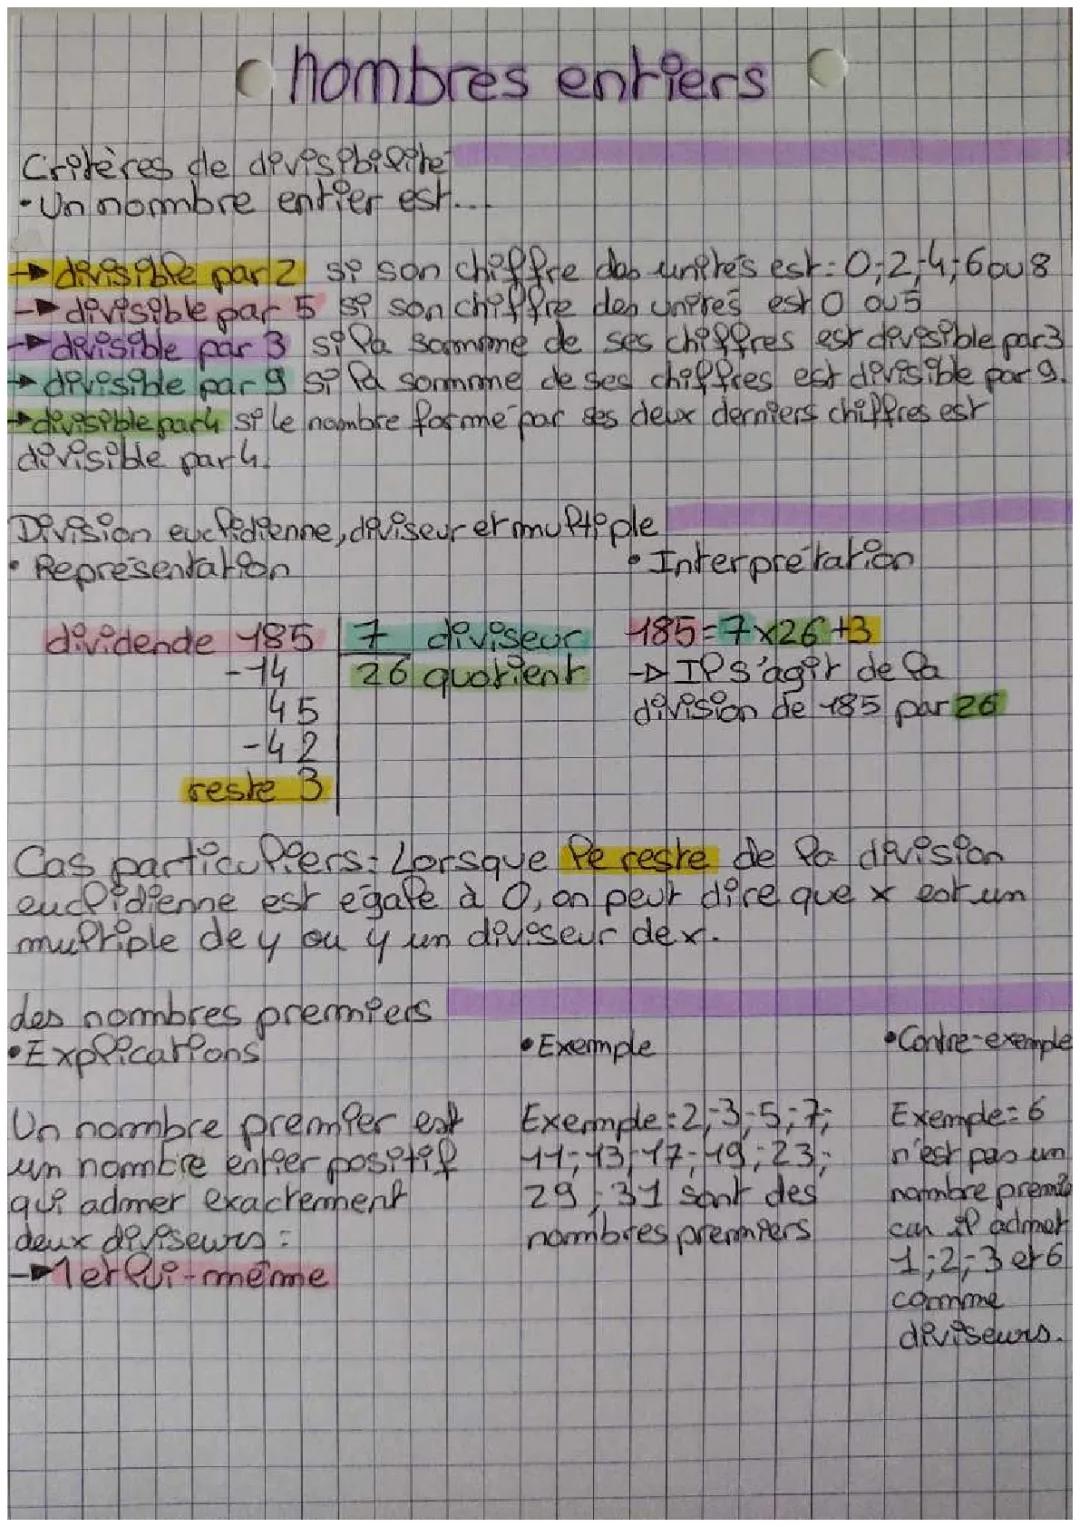 nombres entiers
Critères de divisibilité
• Un nombre entier est...
→ divisible par 2 si son chiffre des unités est : 0;2;4;6 ou 8
→ divisible par 5 si son chiffre des unités est 0 ou 5
→ divisible par 3 si la somme de ses chiffres est divisible par 3
→ divisible par 9 si la somme de ses chiffres est divisible par 9.
→ divisible par 4 si le nombre formé par ses deux derniers chiffres est
divisible par 4.
Division euclidienne, diviseur et multiple
• Représentation
• Interprétation
dividende 185 | 7 diviseur
-14 | 26 quotient
45
-42
reste 3
185 = 7 x 26 + 3
→ Il s'agit de la
division de 185 par 26
Cas particuliers : Lorsque le reste de la division
euclidienne est égale à 0, on peut dire que x est un
multiple de y ou y un diviseur de x.
des nombres premiers
• Explications
Un nombre premier est
un nombre entier positif
qui admet exactement
deux diviseurs :
→ 1 et lui-même
• Exemple
Exemple : 2;3;5;7;
11;13;17;19;23;
29;31 sont des
nombres premiers
• Contre-exemple
Exemple : 6
n'est pas un
nombre premi
car il admet
1;2;3 et 6
comme
diviseurs.